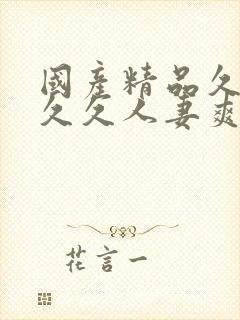 國産精品久
久久人妻爽
花言一